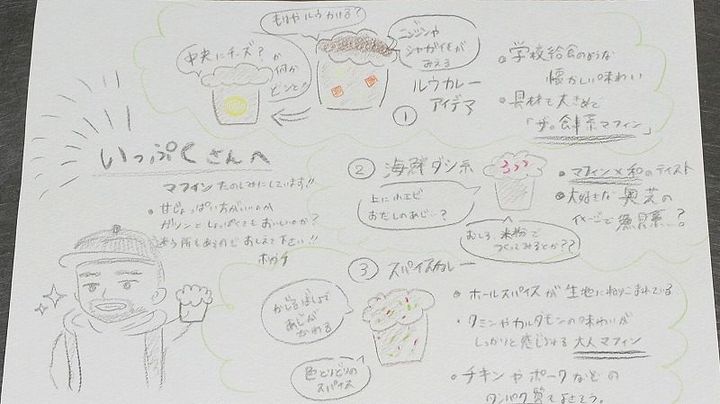 もはやルウかける?
ニンジンや
ジャガイモが
みえる
中央にチーズ?か
何か
ドンと!
ルウカレー
アイデア
①
・学校給食のような
懐かしい味わい
・具材も大きめで
「ザ・食事系マフィン」
いっぷくさんへ
マフィンたのしみにしています!!
・甘じょっぱい方がいいか
ガツンとしょっぱくてもおいしいか?
おしえて下さい!!
② 海鮮ダシ系
上に小エビ
おだしのあじ…?
むしろ、米粉で
つくってみるとか??
・マフィン×和のテイスト
・大好きな奥芝の
イメージで魚貝系…?
③ スパイスカレー
かじるばしょで
あじが
かわる
色とりどりの
スパイス
・ホールスパイスが生地にねりこまれている
・クミンやカルダモンの味わいが
しっかりと感じられる大人マフィン
・チキンやポークなどの
タンパク質でよさそう。